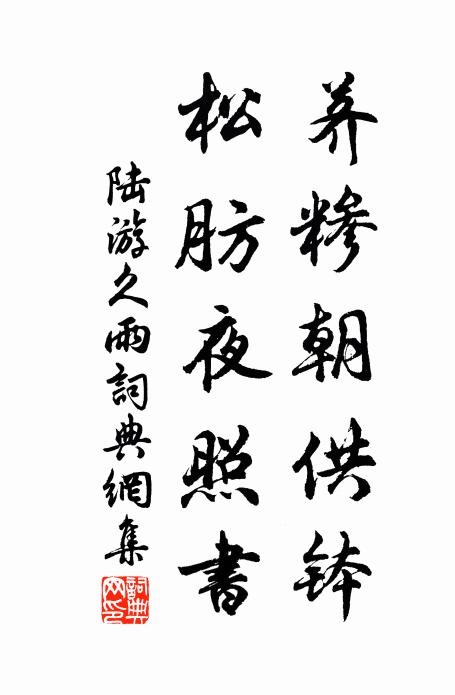 荞糁朝供钵
松肪夜照書
陆游久雨詞典網集
詞典
网印